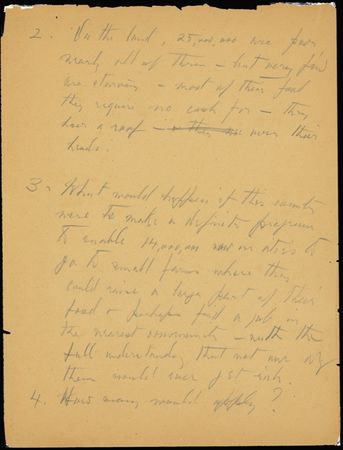 2. On the land, 25,000,000 are poor
nearly all of them - but very few
are starving - most of their food
they require no cash for - they
have a roof - over their
heads.
3- What would happen if this country
were to make a definite program
to enable 14,000,000 now in cities to
go to small farms where they
could raise a large part of their
food & perhaps find a job in
the nearest community - with the
full understanding that not one of
them would ever get rich.
4. How many would apply?